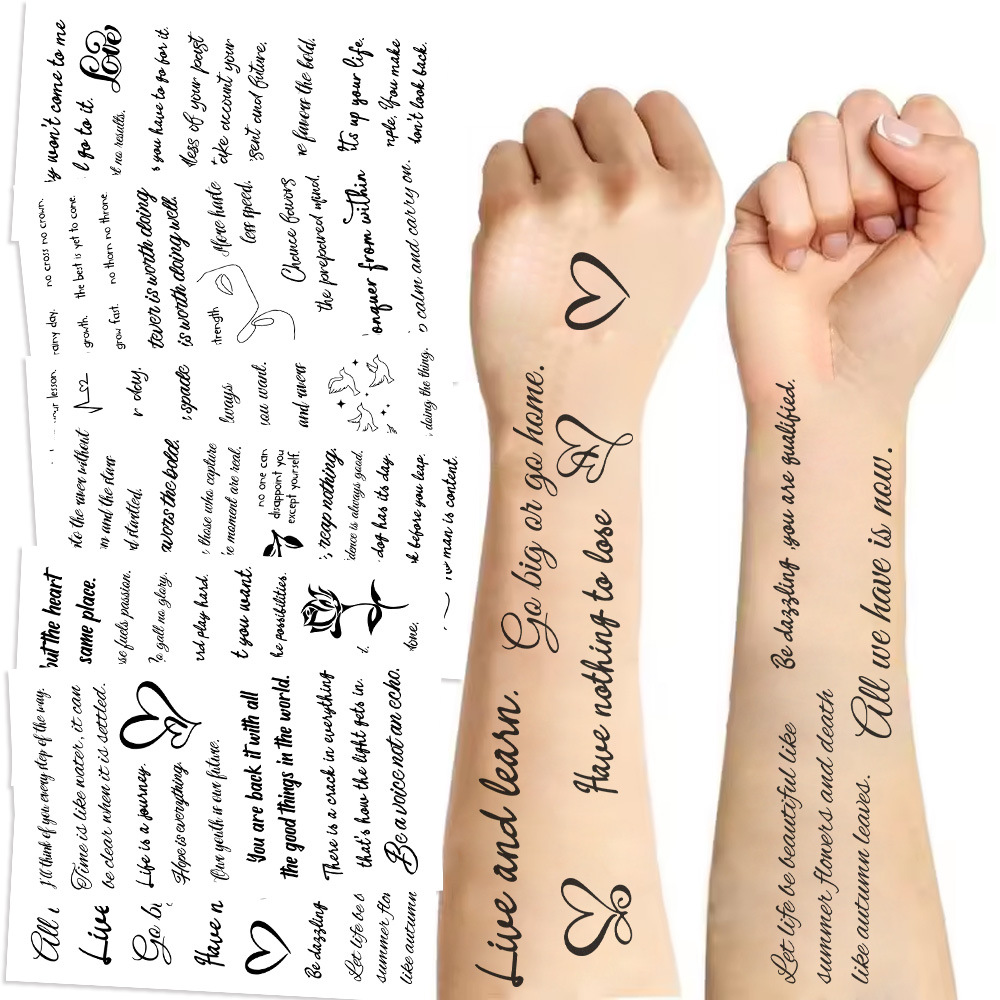 y won't come to me
l go to it.
Love
t no results.
s you have to go for it.
less of your past
take account your
sent and future.
re favors the bold.
It's up your life.
mple. You make
don't look back.
no cross no crown.
rainy day.
the best is yet to come
growth.
no thorn no throne
grow fast.
tever is worth doing
is worth doing well.
Move haste
less speed.
trength
Chance favors
the prepared mind.
onquer from within
p calm and carry on.
ur lesson.
r day.
spade
lways
you want.
and never
doing the thing.
ite the river without
m and the slow
d startled.
avors the bold.
those who capture
e moment are real.
no one can
disappoint you
except yourself.
, reap nothing.
idence is always good.
dog has its day.
k before you leap.
man is content.
but the heart
same place.
se fuels passion.
o gall no glory.
nd play hard.
t you want.
he possibilities.
t.
lone.
I'll think of you every step of the way.
Time is like water, it can
be clear when it is settled.
Life is a journey.
Hope is everything.
Our youth is our future.
You are back it with all
the good things in the world.
There is a crack in everything
that's how the light gets in.
Be a voice not an echo.
All
Live
Go bi
Have n
Be dazzling
Let life be b
summer flo
like autumn
Live and learn.
Go big or go home.
Have nothing to lose
Be dazzling ,you are qualified.
All we have is now.
Let life be beautiful like
summer flowers and death
like autumn leaves.